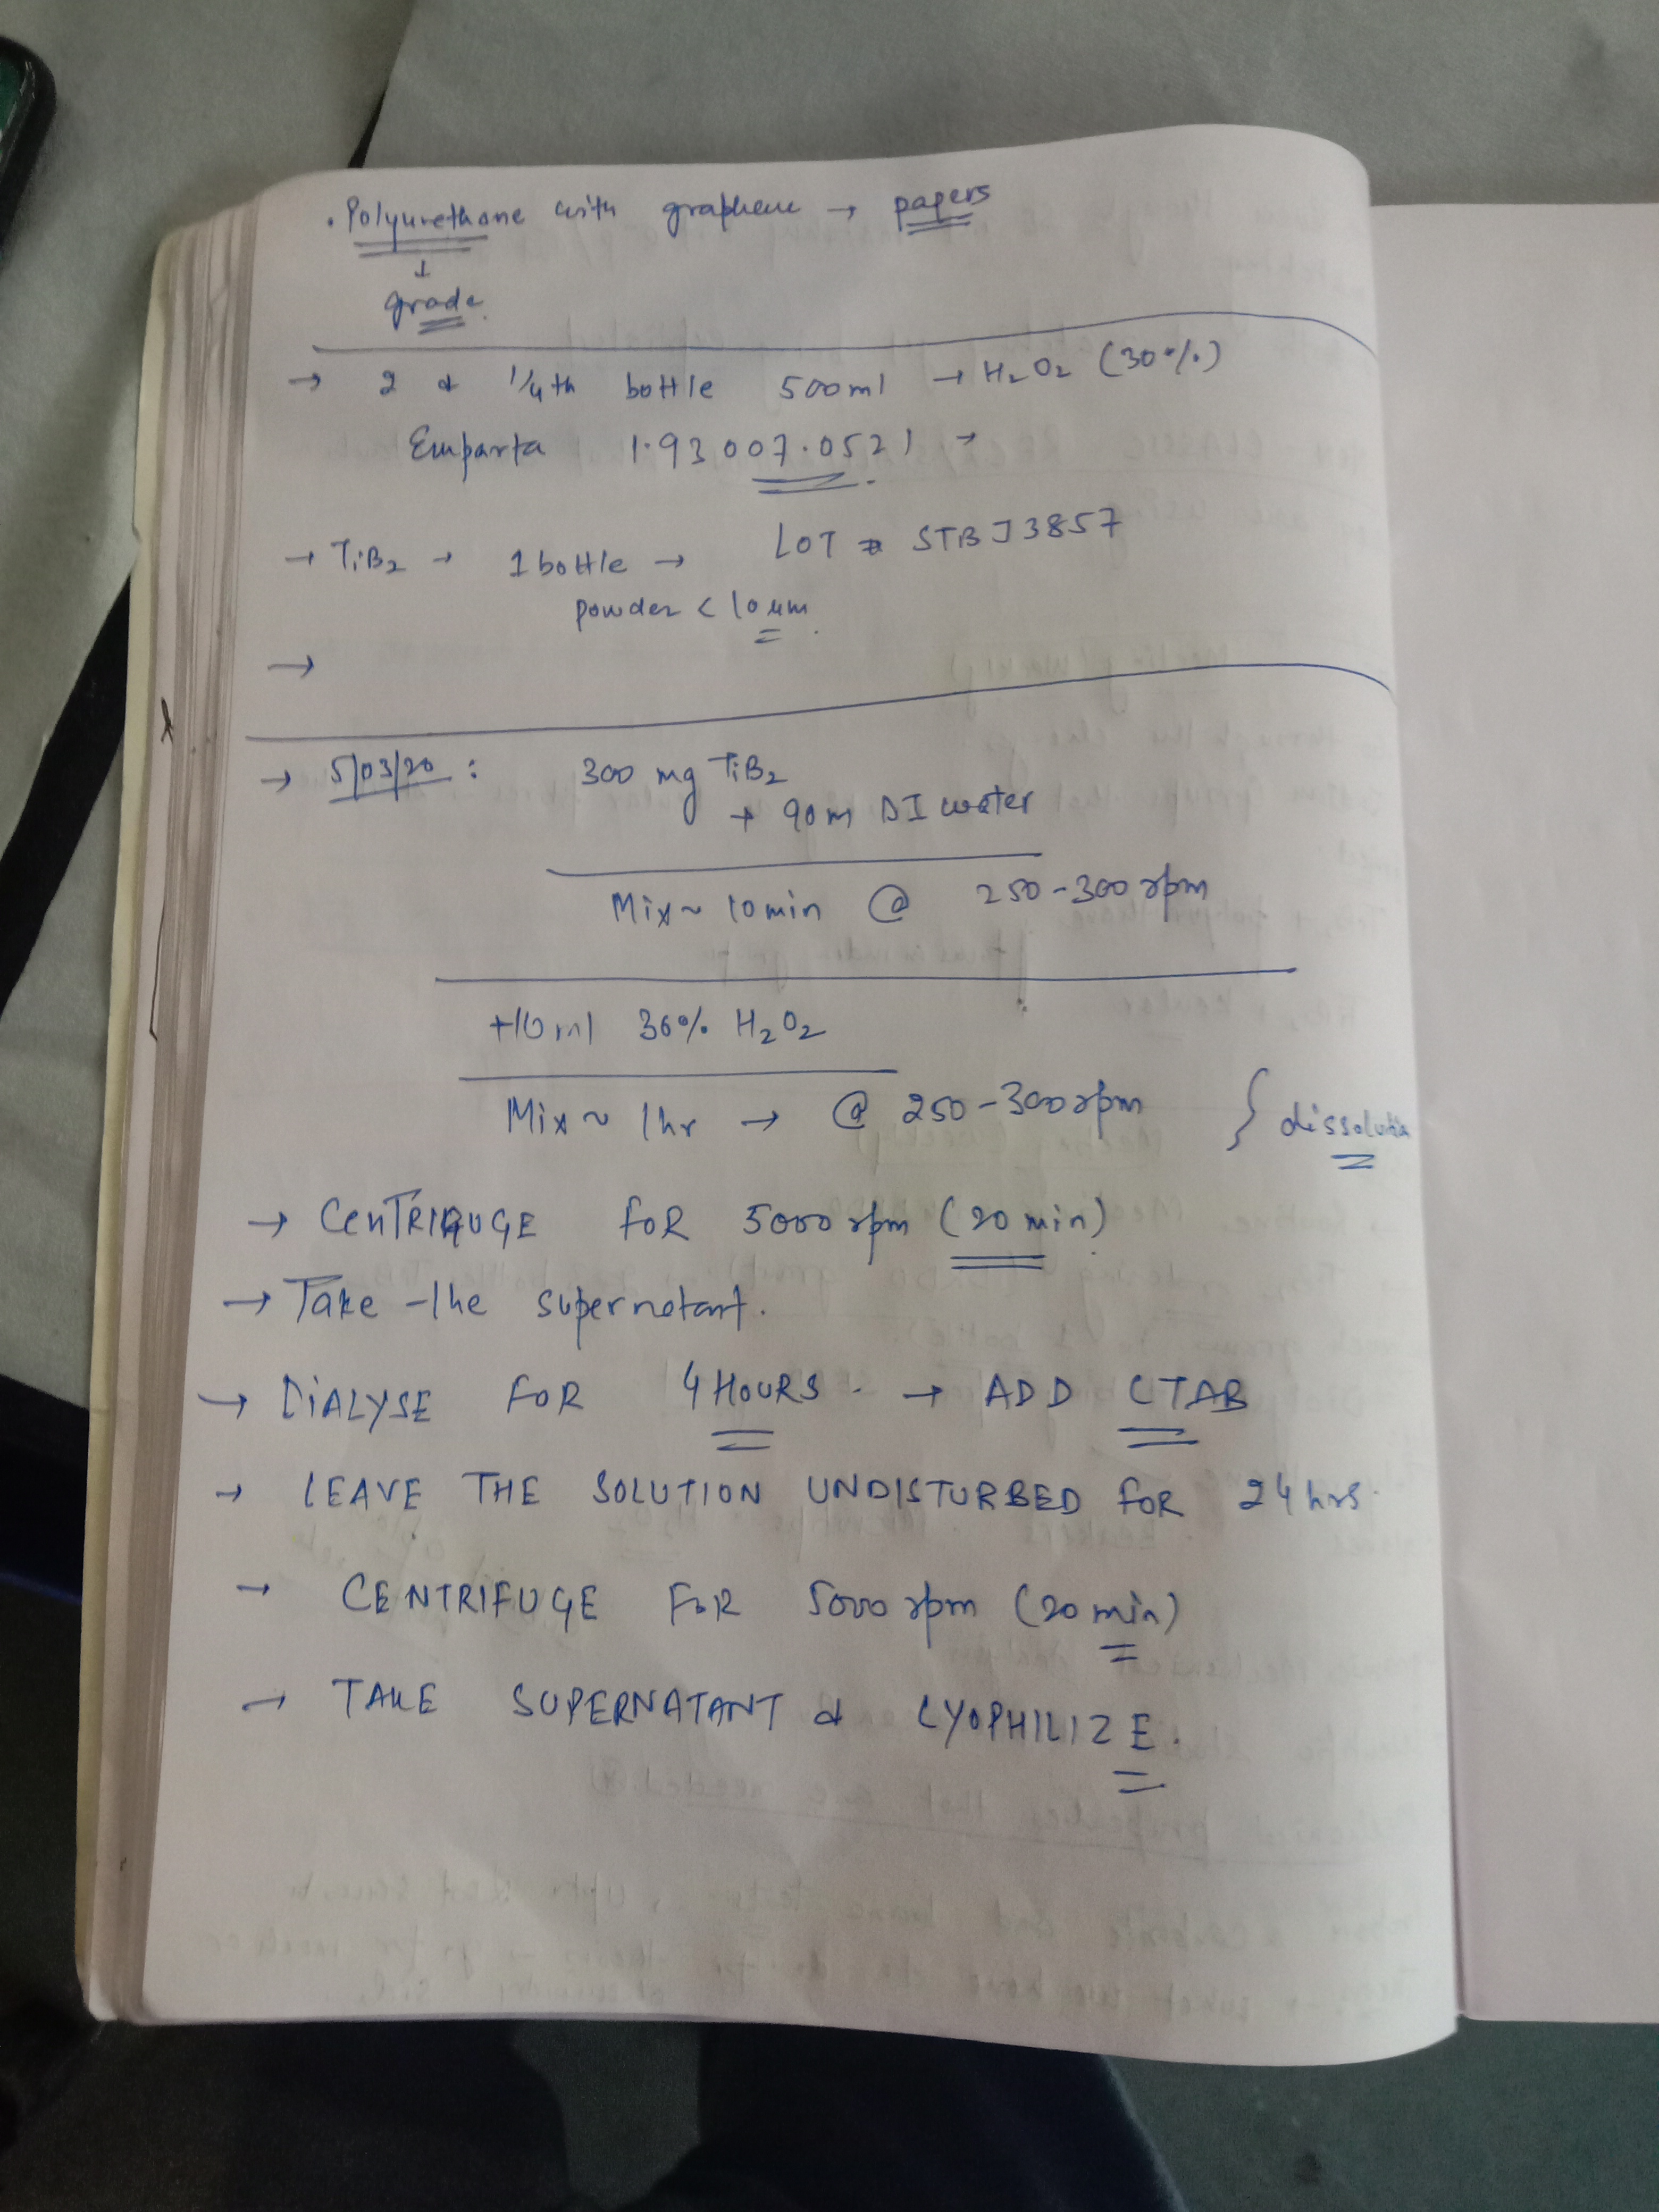 . Polyurethane with graphene → papers
↓
grade.
→ 2 & 1/4th bottle 500ml → H2O2 (30%)
Emparta 1.93007.0521 →
→ TiB2 → 1 bottle → LOT # STBJ3857
powder < 10 µm.
→
→ 5/03/20 : 300 mg TiB2
+ 90m DI water
Mix ~ 10 min @ 250-300 rpm
+10 ml 30% H2O2
Mix ~ 1hr → @ 250-300 rpm } dissolution
→ CENTRIFUGE FOR 5000 rpm (20 min)
→ Take the supernatant.
→ DIALYSE FOR 4 HOURS. → ADD CTAB
→ LEAVE THE SOLUTION UNDISTURBED FOR 24 hrs.
→ CENTRIFUGE FOR 5000 rpm (20 min)
→ TAKE SUPERNATANT & LYOPHILIZE.